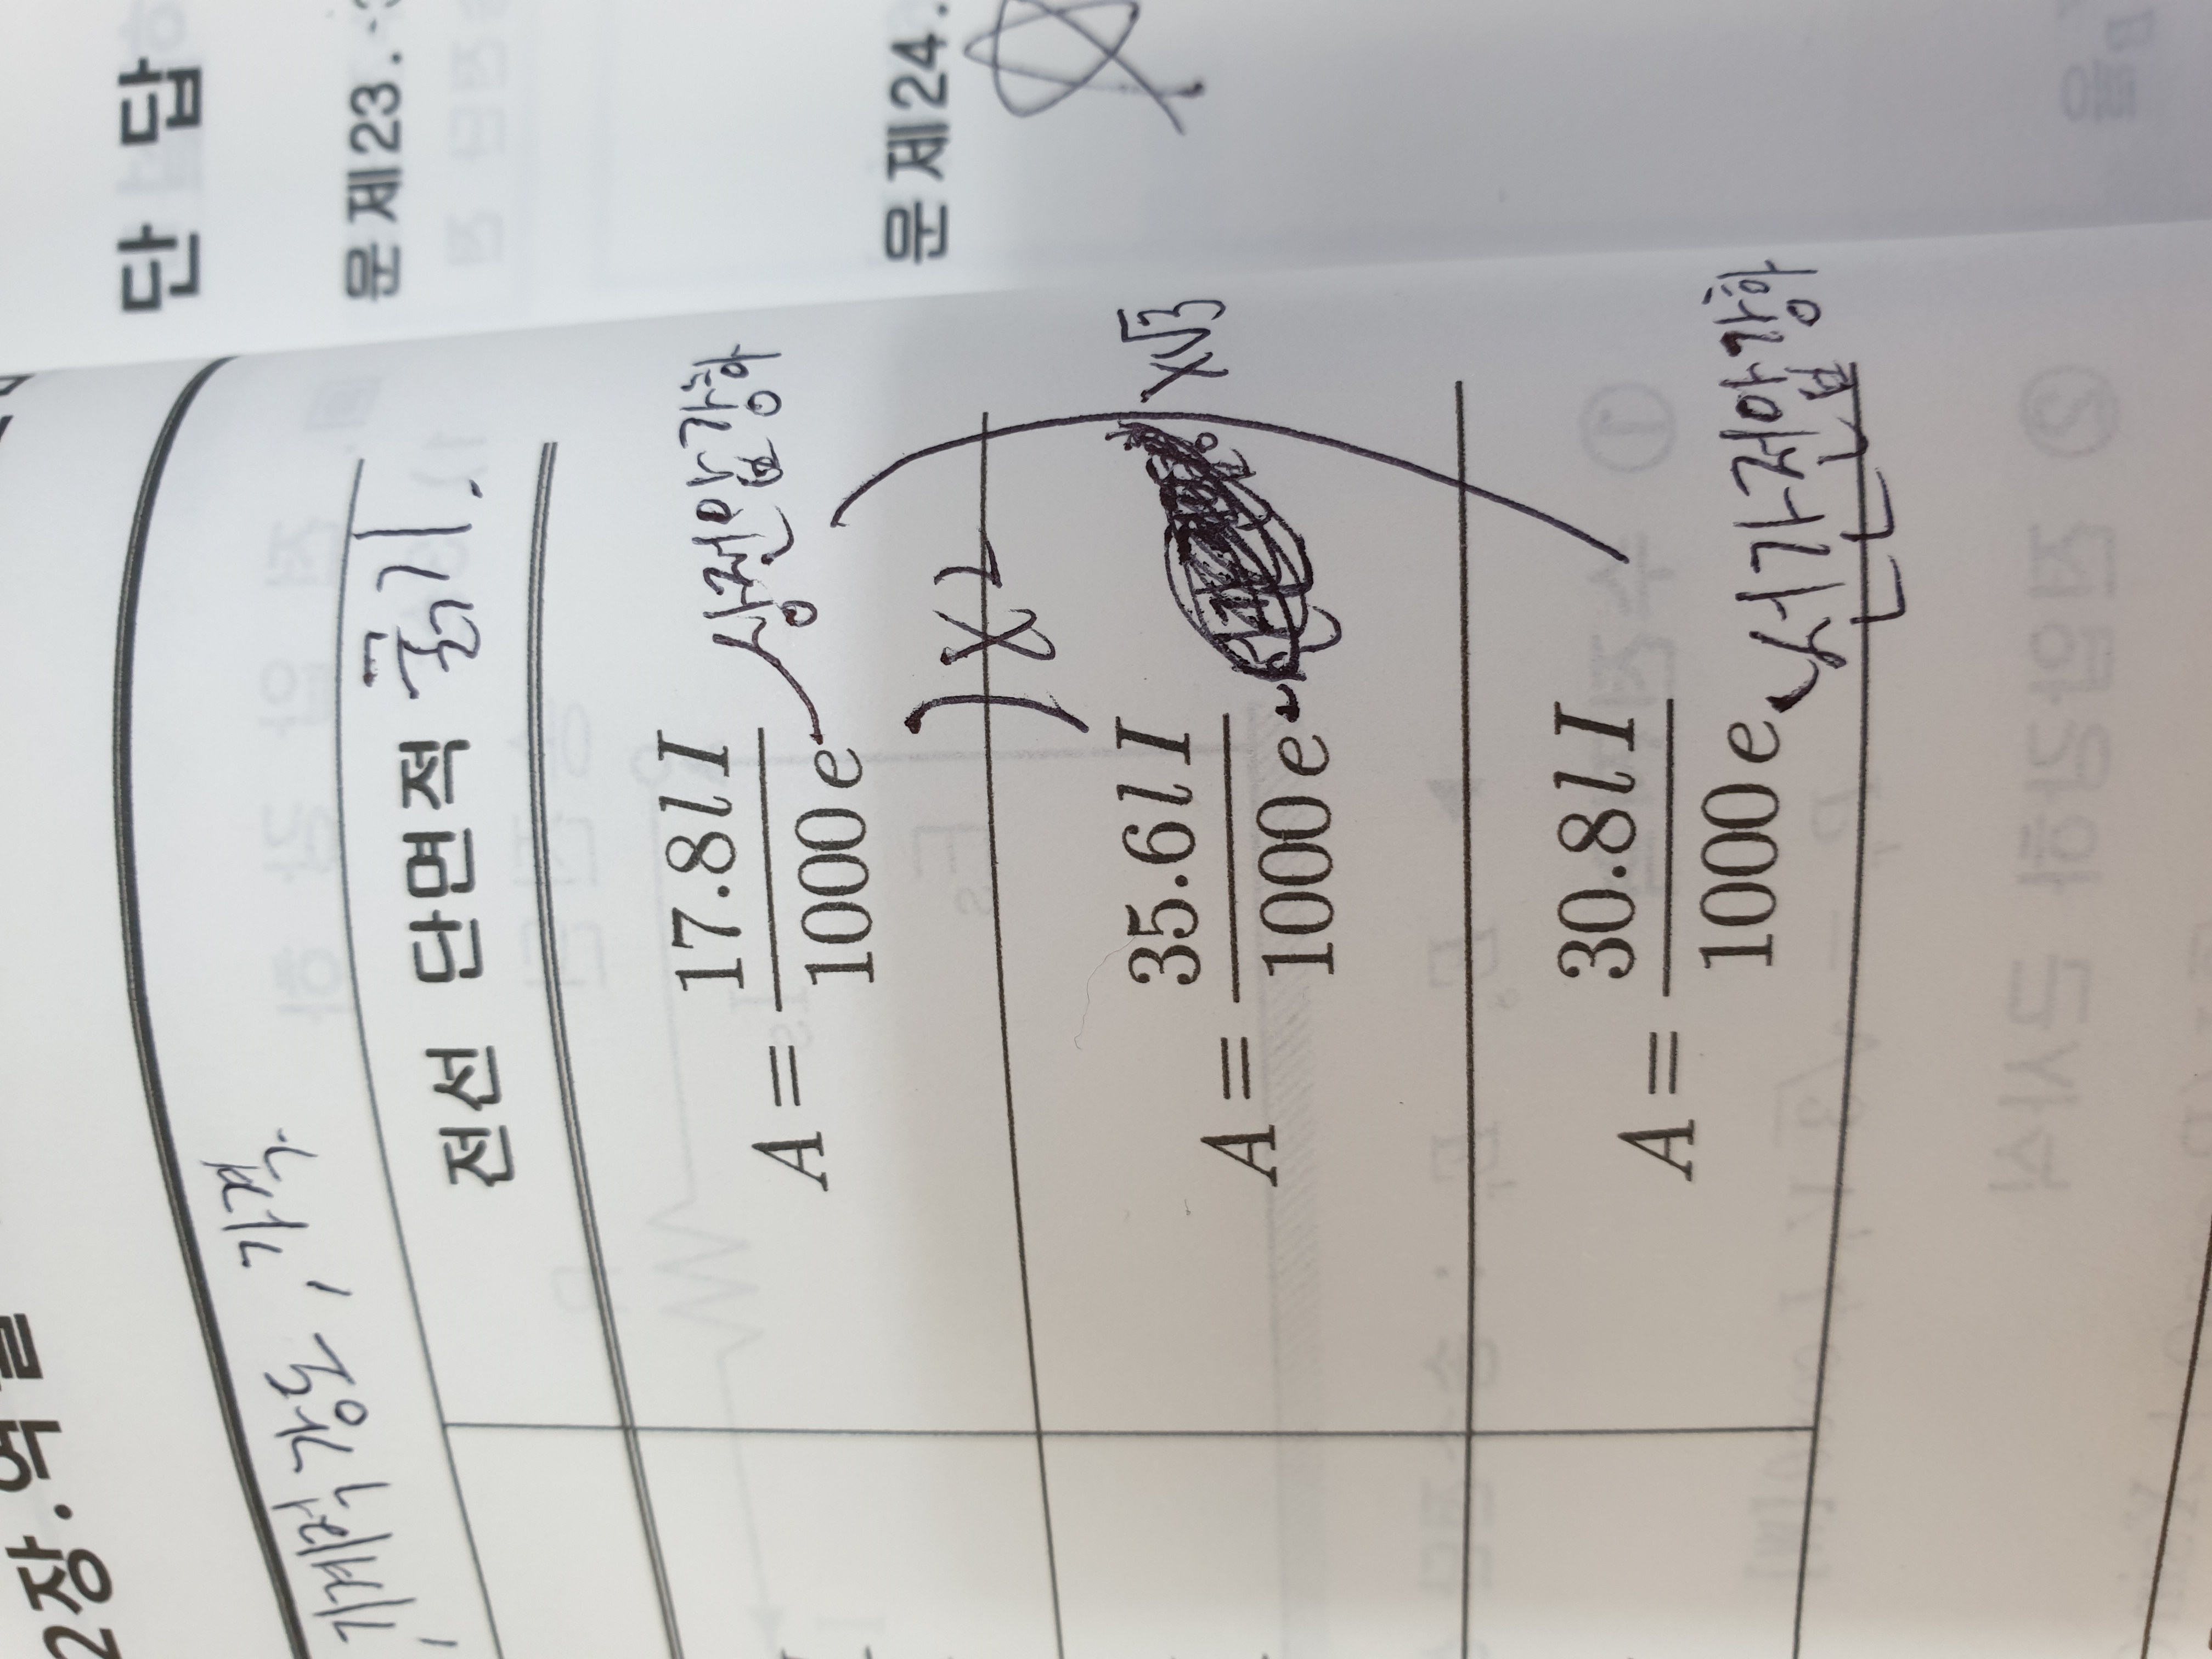 2장.
기계적강도, 허용
전선 단면적 굵기.
A = 17.8lI / 1000e
상전압강하
×2
A = 35.6lI / 1000e
×√3
A = 30.8lI / 1000e
선간전압강하
단 답
문제23.
문제24.